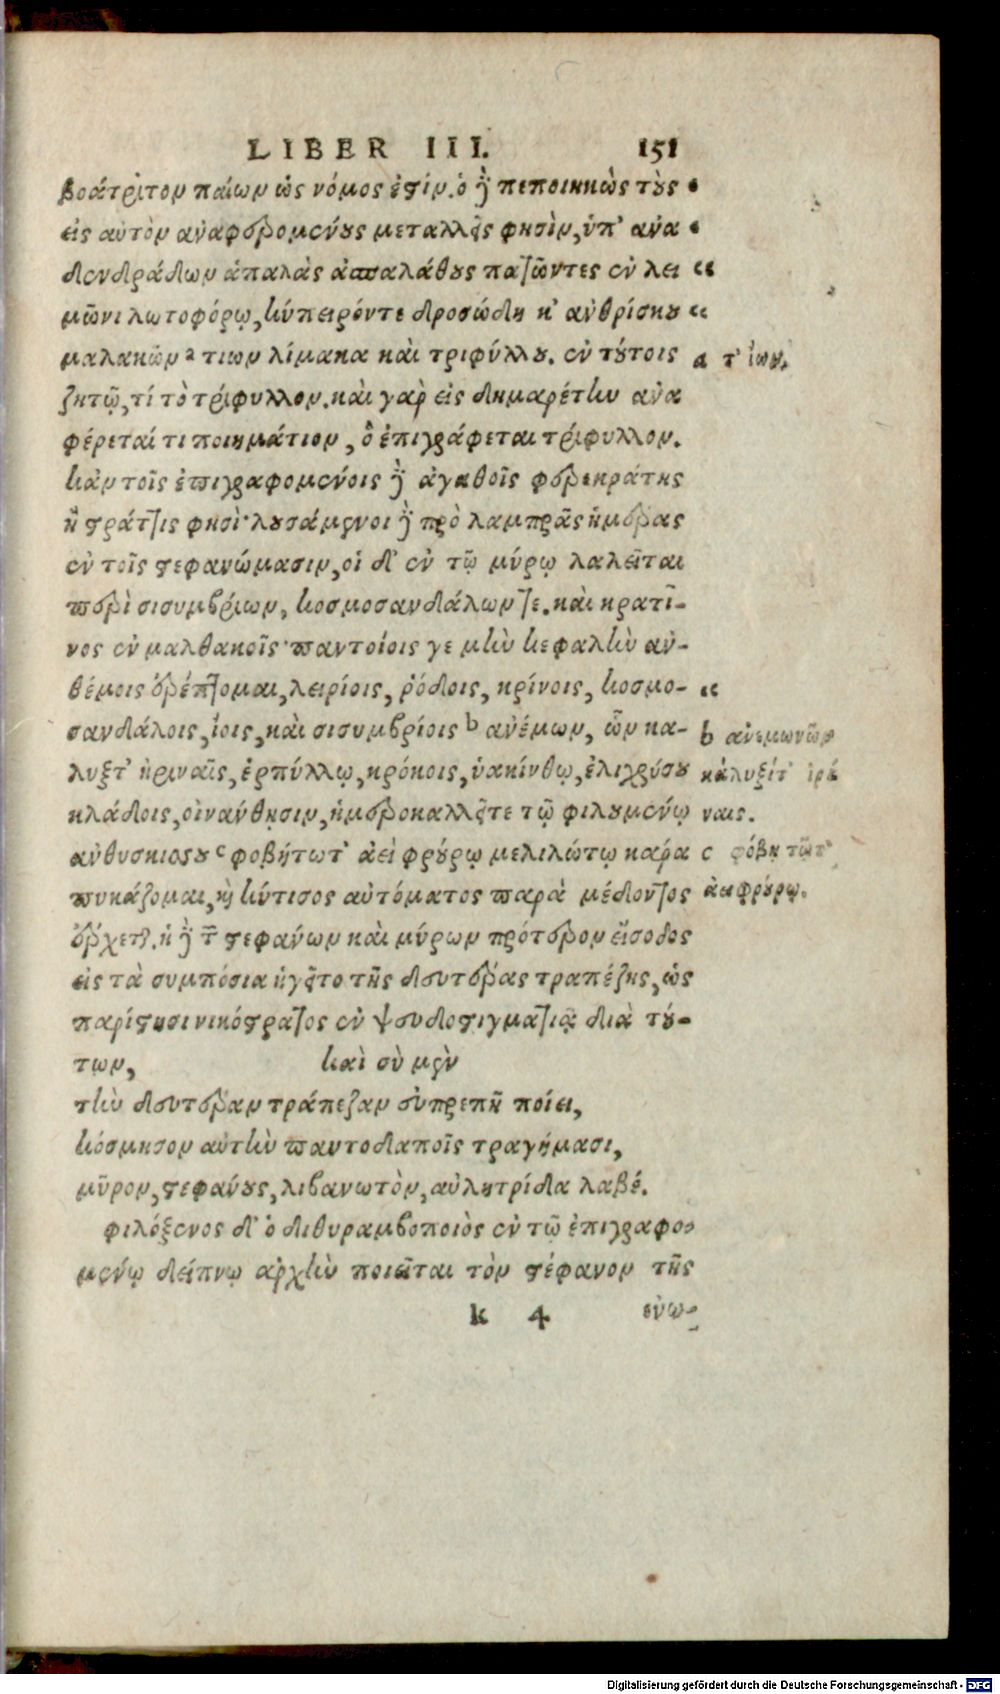 LIBER III. 151
βοάτριτον παίων ὡς νόμος ἐστίν. ὁ δὲ πεποιηκὼς τοὺς
εἰς αὐτὸν ἀναφερομένους μεταλλεῖς φησὶν, ὑπ' ἀνα
δενδράδων ἁπαλὰς ἀσπαλάθους πατῶντες ἐν λει “
μῶνι λωτοφόρῳ, κύπειρόντε δροσώδη κ' ἀνθρίσκου “
μαλακῶν a τιων λίμακα καὶ τριφύλλου. ἐν τούτοις a τ' ἰων.
ζητῶ, τί τὸ τρίφυλλον. καὶ γὰρ εἰς δημαρέτην ἀνα
φέρεταί τι ποιημάτιον, ὃ ἐπιγράφεται τρίφυλλον.
κἀν τοῖς ἐπιγραφομένοις δὲ ἀγαθοῖς φερεκράτης
ἢ στράττις φησὶ· λουσάμενοι δὲ πρὸ λαμπρᾶς ἡμέρας
ἐν τοῖς στεφανώμασιν, οἱ δ' ἐν τῷ μύρῳ λαλεῖται
περὶ σισυμβρίων, κοσμοσανδάλων τε. καὶ κρατῖ-
νος ἐν μαλθακοῖς· παντοίοις γε μὴν κεφαλὴν ἀν-
θέμοις ἐρέπτομαι, λειρίοις, ῥόδοις, κρίνοις, κοσμο- “
σανδάλοις, ἴοις, καὶ σισυμβρίοις b ἀνέμων, ὧν κα- b ἀνεμωνῶν
λυξτ' ἠριναῖς, ἑρπύλλῳ, κρόκοις, ὑακίνθῳ, ἑλιχρύσου κάλυξίτ' ἠρι
κλάδοις, οἰνάνθησιν, ἡμεροκαλλεῖτε τῷ φιλουμένῳ ναις.
ἀνθυσκιοσου c φοβήτωτ' ἀεὶ φρούρῳ μελιλώτῳ κάρα c φόβη τῶτ'
πυκάζομαι, καὶ κύτισος αὐτόματος παρὰ μέδοντος ἀει φρουρῳ.
ἔρχεται. ἡ δὲ τῶν στεφάνων καὶ μύρων πρότερον εἴσοδος
εἰς τὰ συμπόσια ἡγεῖτο τῆς δευτέρας τραπέζης, ὡς
παρίστησι νικόστρατος ἐν ψευδοστιγματίᾳ διὰ τού-
των, καὶ σὺ μὲν
τὴν δευτέραν τράπεζαν εὐπρεπῆ ποίει,
κόσμησον αὐτὴν παντοδαποῖς τραγήμασι,
μῦρον, στεφάνους, λιβανωτὸν, αὐλητρίδα λαβέ.
φιλόξενος δ' ὁ διθυραμβοποιὸς ἐν τῷ ἐπιγραφο-
μένῳ δείπνῳ ἀρχὴν ποιεῖται τὸν στέφανον τῆς
k 4 εὐω-
Digitalisierung gefördert durch die Deutsche Forschungsgemeinschaft - DFG